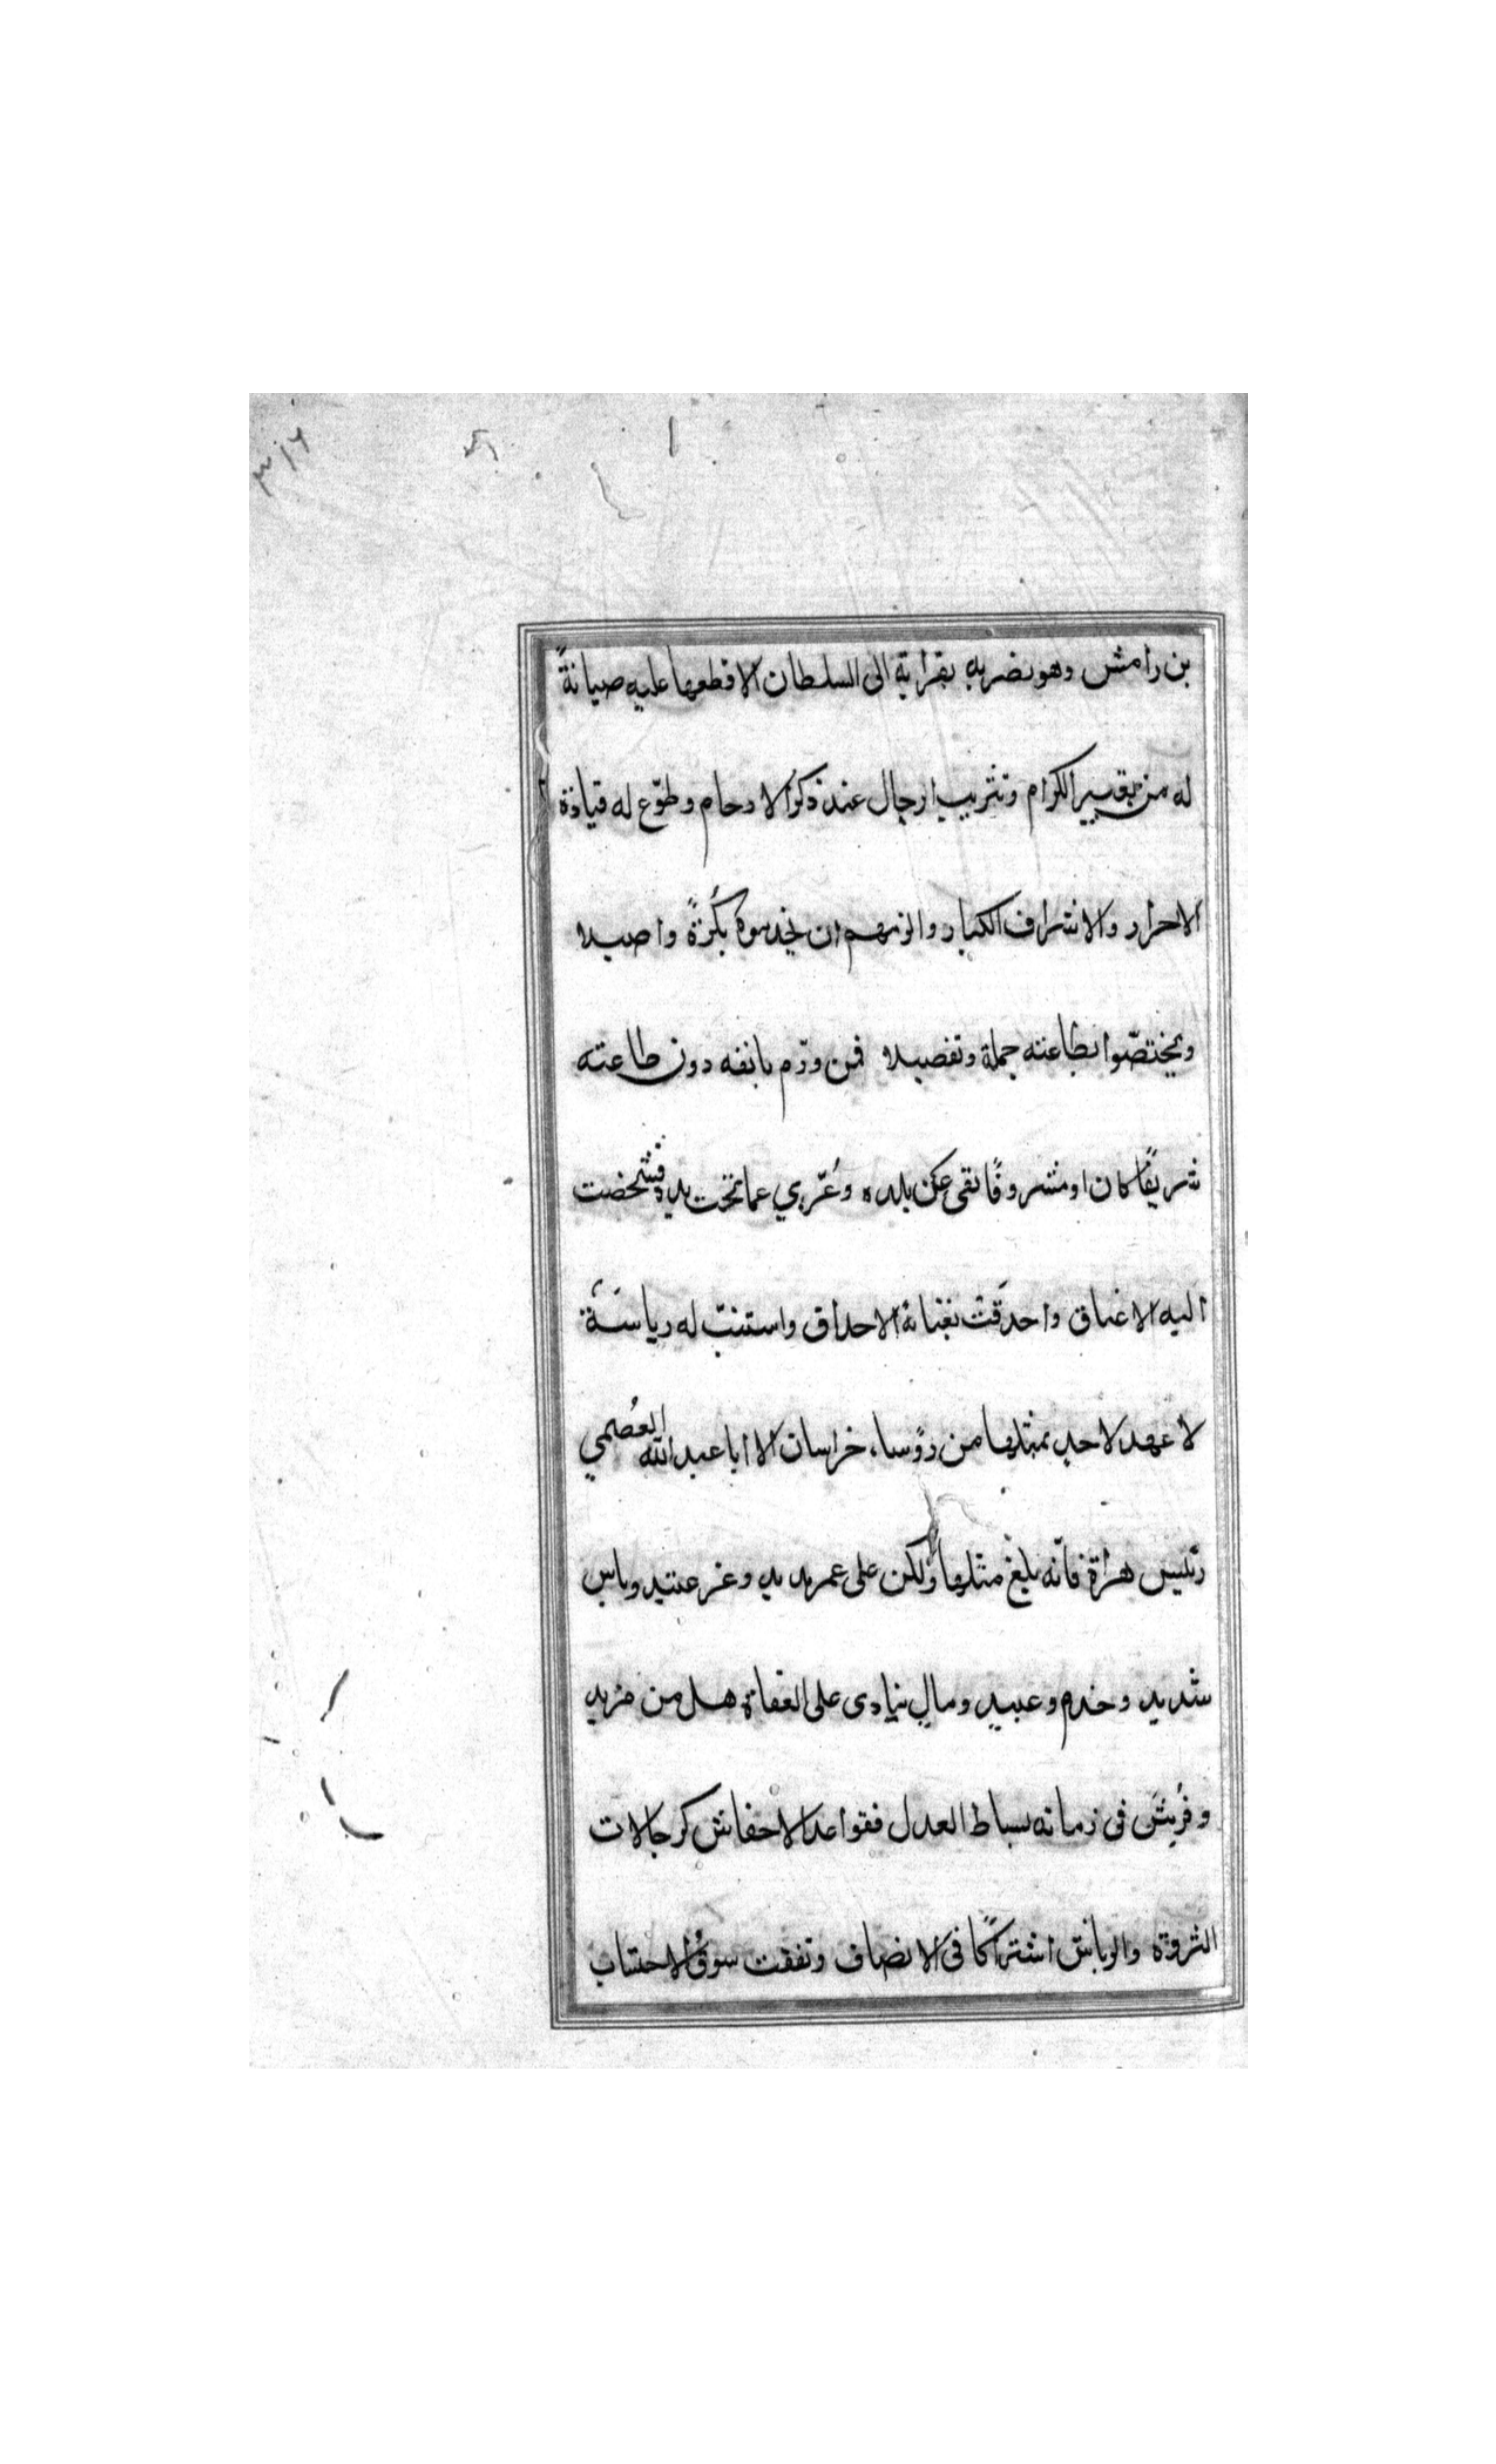 ٣١٦
بن رامش وهو نضريه بقرابة الى السلطان الا قطعها عليه صيانةً
له من تقسير الكرام وتثريب ارجال عند ذكر الارحام وطوّع له قيادة
الاحرار والاشراف الكبار والزمهم ان يخدموه بكرةً واصيلا
ويختصّوا بطاعته جملة وتفصيلا فمن ورّم بانفه دون طاعته
شريفًا كان او مشروفًا نفى عن بلده وعُرّي عما تحت يده فشخصت
اليه الاعناق واحدَقت بفنائه الاحداق واستتبّ له رياسَة
لا عهد لاحدٍ بمثلها من رؤساء خراسان الا ابا عبد الله العُصمي
رئيس هراة فانّه بلغ مثلها ولكن على عمر مديد وعز عتيد وباس
شديد وخدم وعبيد ومالٍ ينادى على العفاة هل من مزيد
وفُرِشَ فى زمانه بساط العدل فقواعد الاحفاش كرجالات
الثروة والوبانش اشتراكًا فى الانصاف ونفقت سوقُ الاحتساب